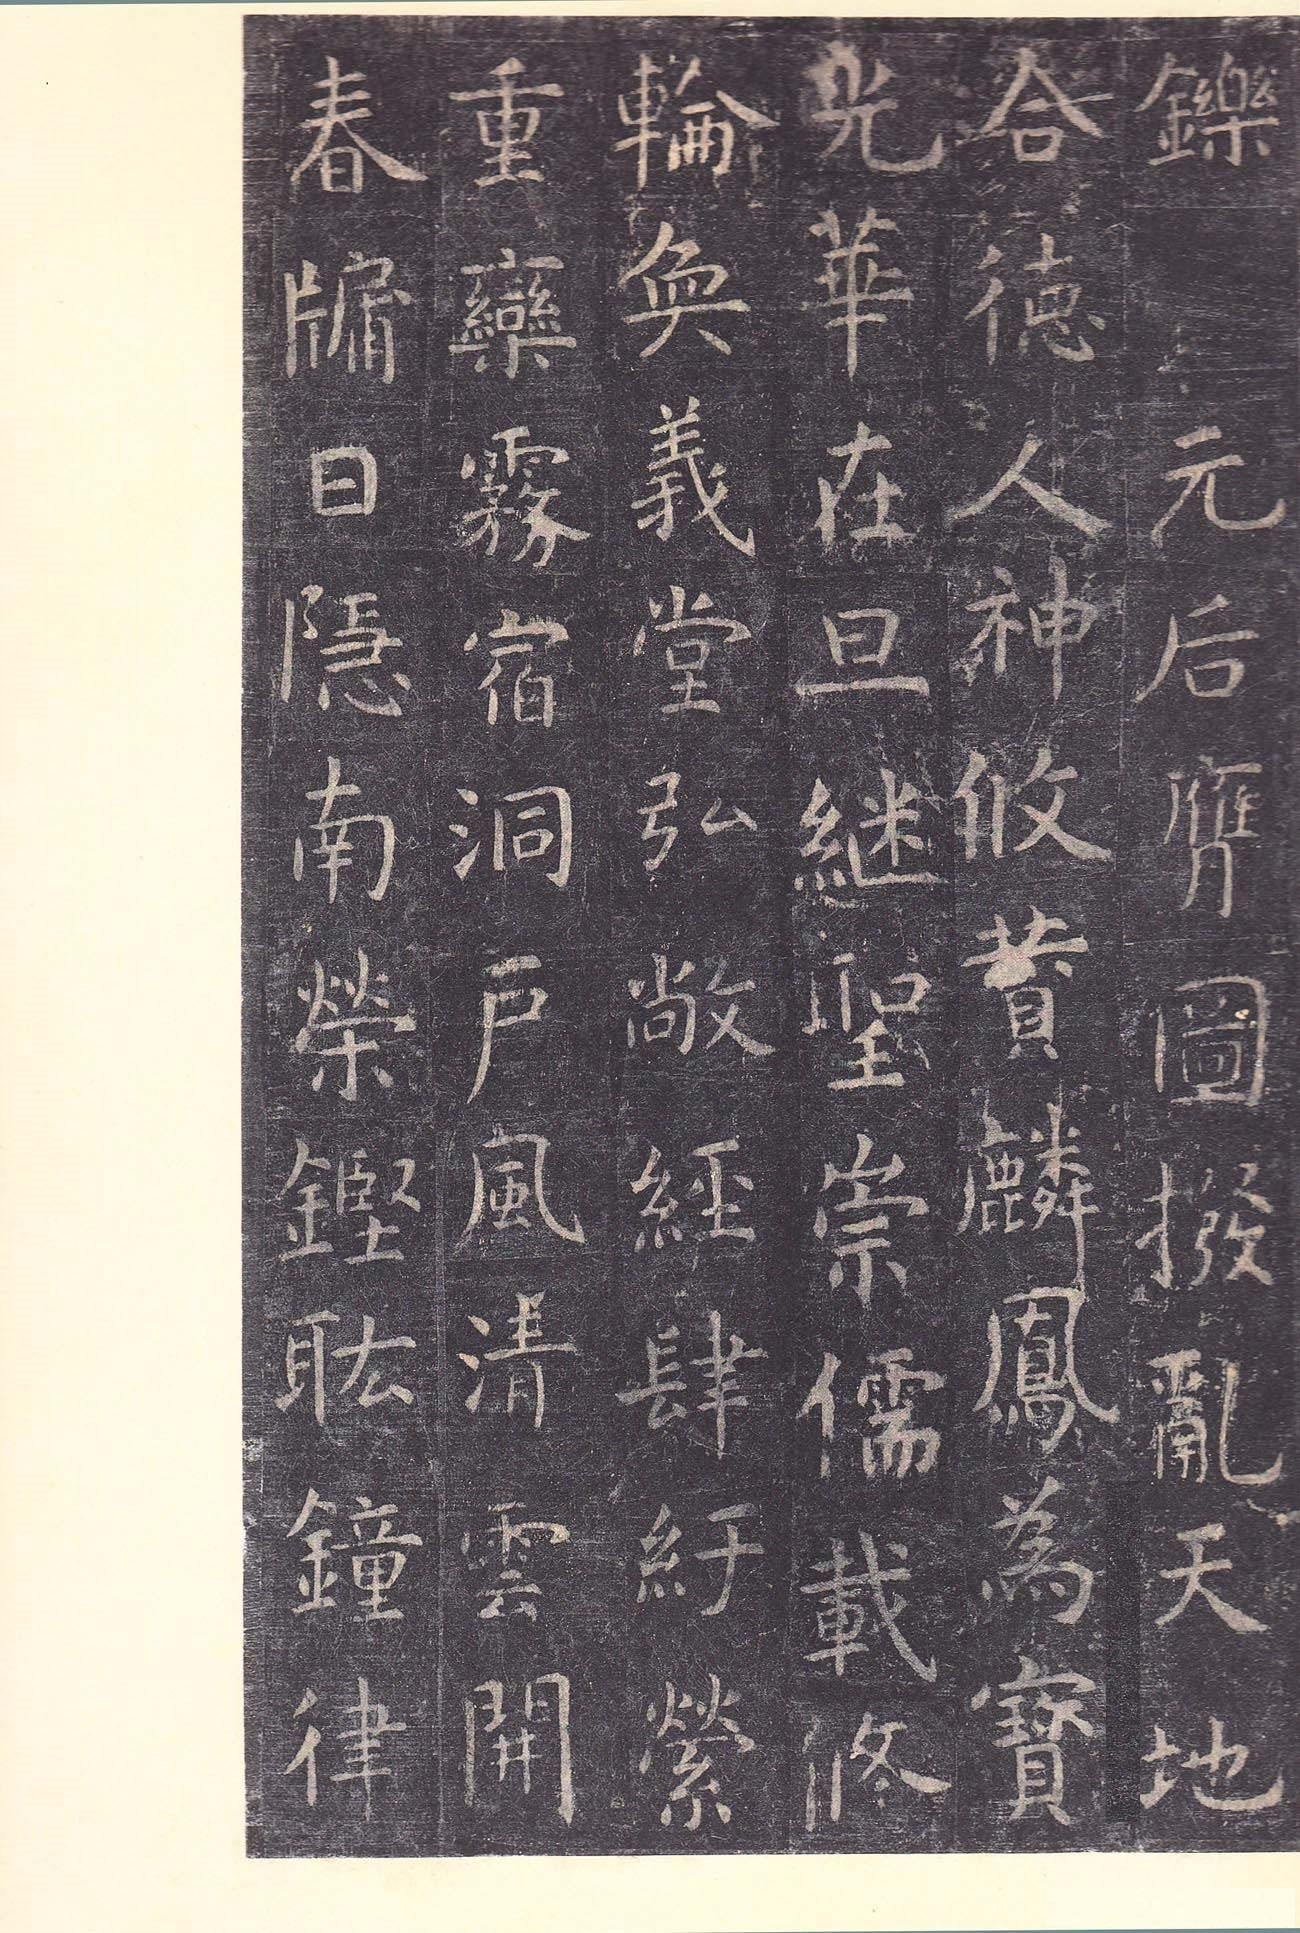 鑠　元后膺圖撥亂天地
合德人神攸賛麟鳳為寶
光華在旦継聖崇儒載脩
輪奐義堂弘敞經肆紆縈
重欒霧宿洞户風清雲開
春牖日隱南榮鏗耾鐘律